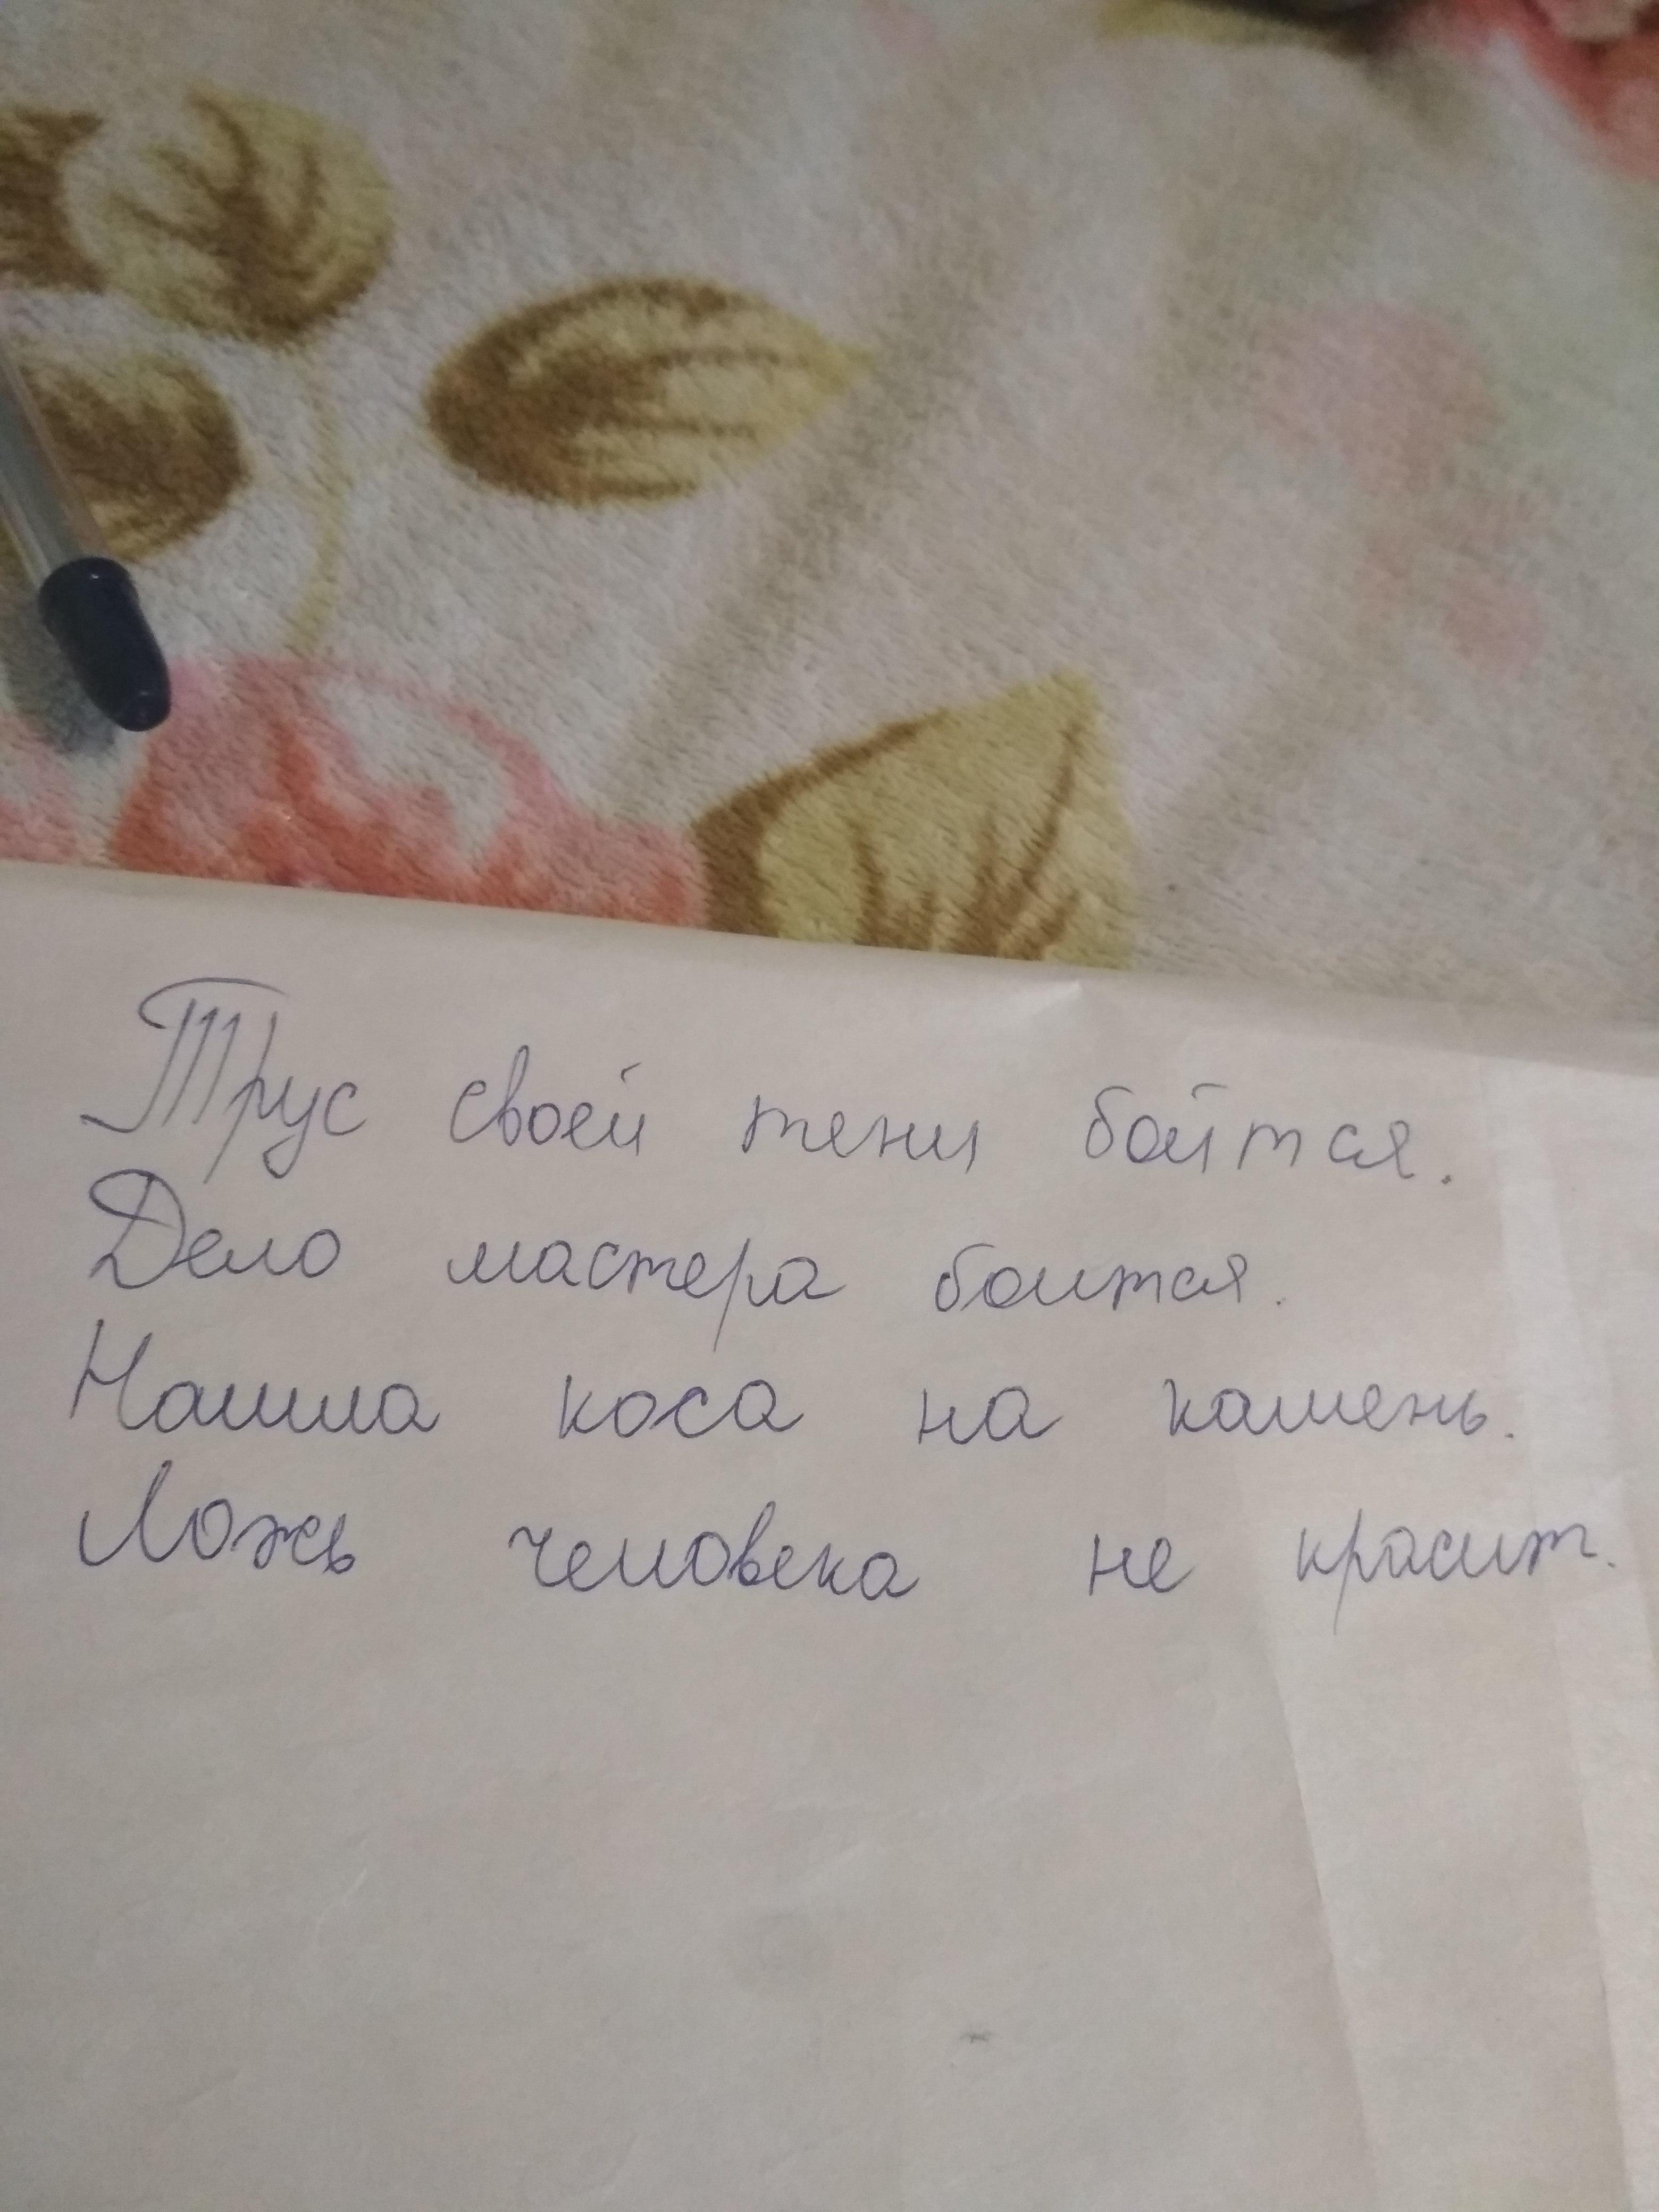 Трус своей тени бойтся.
Дело мастера боится.
Нашла коса на камень.
Ложь человека не красит.